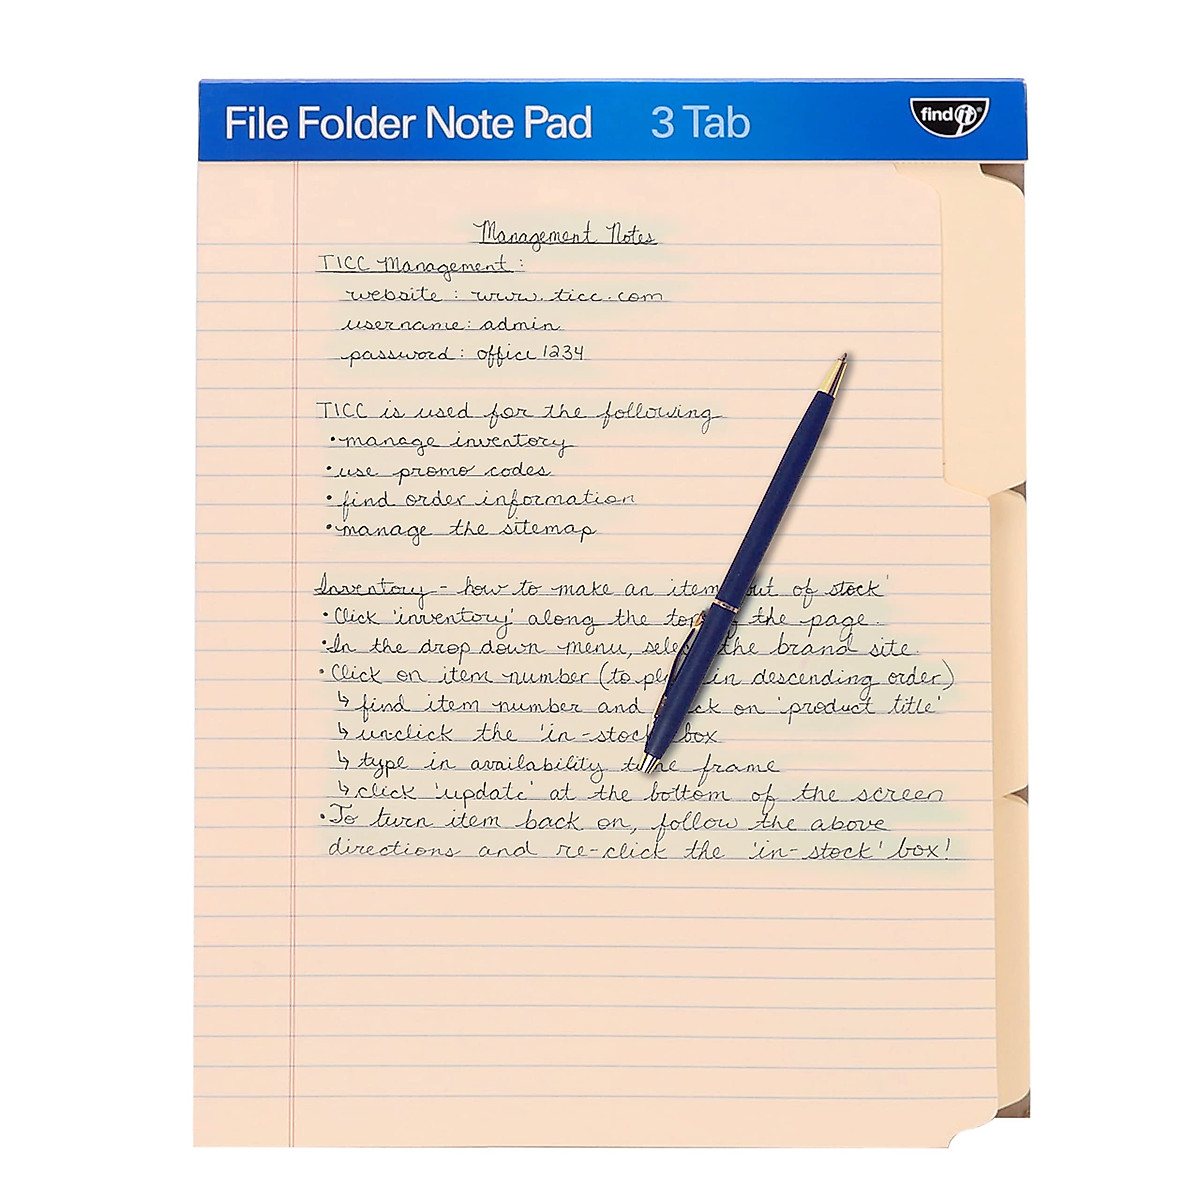 File Folder Note Pad 3 Tab find it®
Management Notes
TICC Management:
website: www.ticc.com
username: admin
password: office1234
TICC is used for the following
•manage inventory
•use promo codes
•find order information
•manage the sitemap
Inventory - how to make an item out of stock'
•Click 'inventory' along the top the page.
•In the drop down menu, select the brand site.
•Click on item number (to in descending order)
↳ find item number and click on 'product title'
↳ unclick the 'in-stock box
↳ type in availability time frame
↳ click 'update' at the bottom of the screen
•To turn item back on, follow the above
directions and re-click the 'in-stock' box!